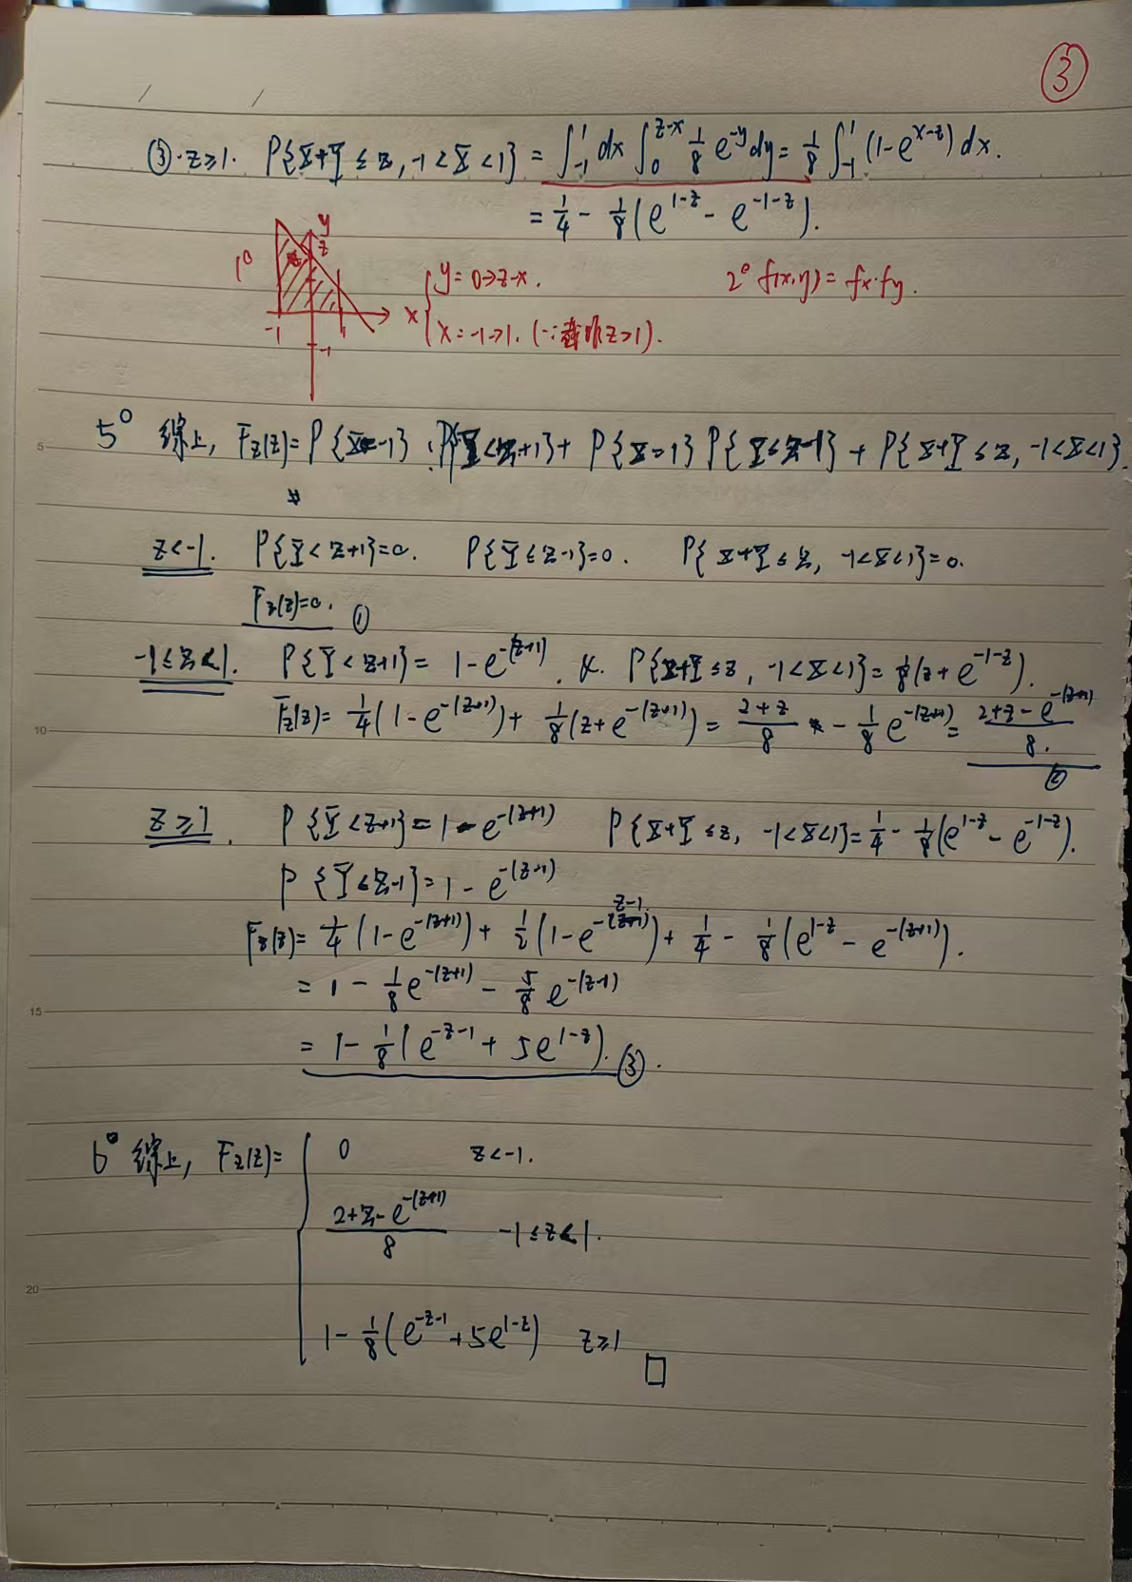 ③
③. z≥1. P{X+Y≤z, -1<X<1} = ∫_{-1}^{1} dx ∫_{0}^{z-x} 1/8 e^{-y} dy = 1/8 ∫_{-1}^{1} (1-e^{x-z}) dx.
= 1/4 - 1/8(e^{1-z} - e^{-1-z}).
1° y z x -1 1 -1
{ y = 0→z-x.
x = -1→1. (∵ z>1).
2° f(x,y) = fx·fy.
5° 综上, F_Z(z) = P{X=-1}·P{Y<z+1} + P{X=1}P{Y≤z-1} + P{X+Y≤z, -1<X<1}.
z<-1. P{Y<z+1}=0. P{Y≤z-1}=0. P{X+Y≤z, -1<X<1}=0.
F_Z(z)=0. ①
-1≤z<1. P{Y<z+1} = 1-e^{-(z+1)}. P{X+Y≤z, -1<X<1} = 1/8(z+e^{-1-z}).
F_Z(z) = 1/4(1-e^{-(z+1)}) + 1/8(z+e^{-(z+1)}) = (2+z)/8 - 1/8 e^{-(z+1)} = (2+z-e^{-(z+1)})/8. ②
z≥1. P{Y<z+1} = 1-e^{-(z+1)} P{X+Y≤z, -1<X<1} = 1/4 - 1/8(e^{1-z} - e^{-1-z}).
P{Y≤z-1} = 1-e^{-(z-1)}
F_Z(z) = 1/4(1-e^{-(z+1)}) + 1/2(1-e^{-(z-1)}) + 1/4 - 1/8(e^{1-z} - e^{-(z+1)}).
= 1 - 1/8 e^{-(z+1)} - 5/8 e^{-(z-1)}
= 1 - 1/8(e^{-z-1} + 5e^{1-z}). ③.
6° 综上, F_Z(z) = { 0 z<-1.
(2+z-e^{-(z+1)})/8 -1≤z<1.
1 - 1/8(e^{-z-1} + 5e^{1-z}) z≥1 □
5
10
15
20